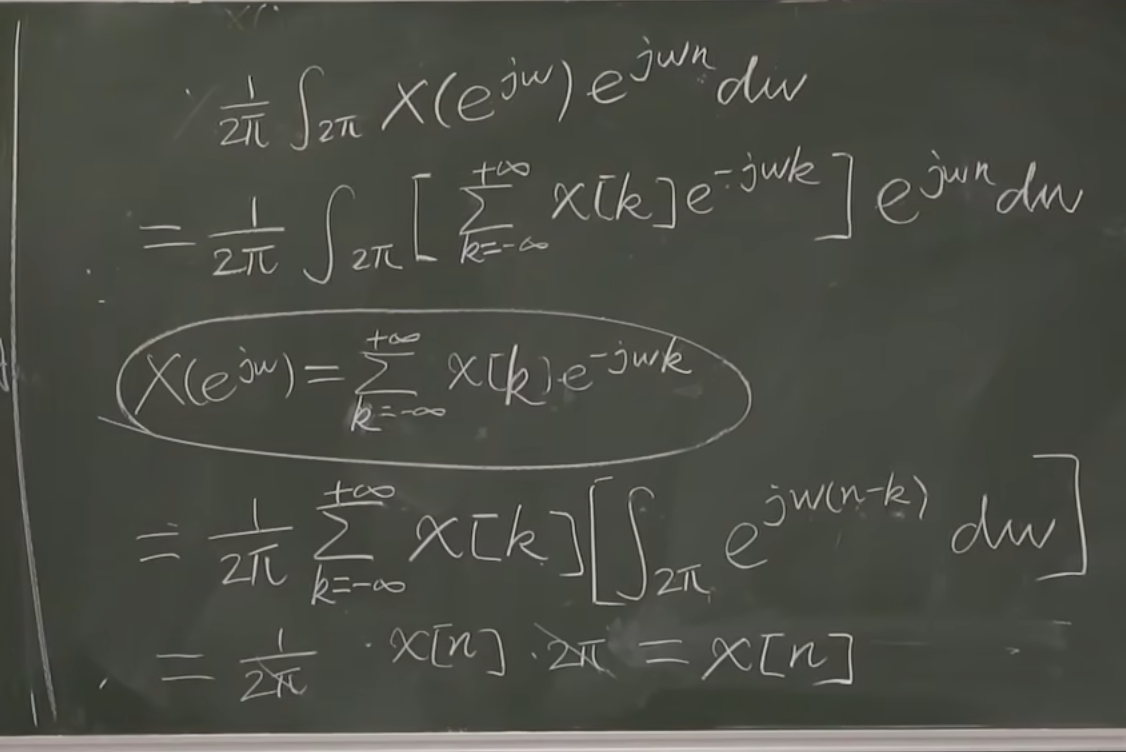 1/2π ∫_{2π} X(e^{jω}) e^{jωn} dω
= 1/2π ∫_{2π} [ ∑_{k=-∞}^{+∞} x[k] e^{-jωk} ] e^{jωn} dω
X(e^{jω}) = ∑_{k=-∞}^{+∞} x[k] e^{-jωk}
= 1/2π ∑_{k=-∞}^{+∞} x[k] [ ∫_{2π} e^{jω(n-k)} dω ]
= 1/2π · x[n] · 2π = x[n]